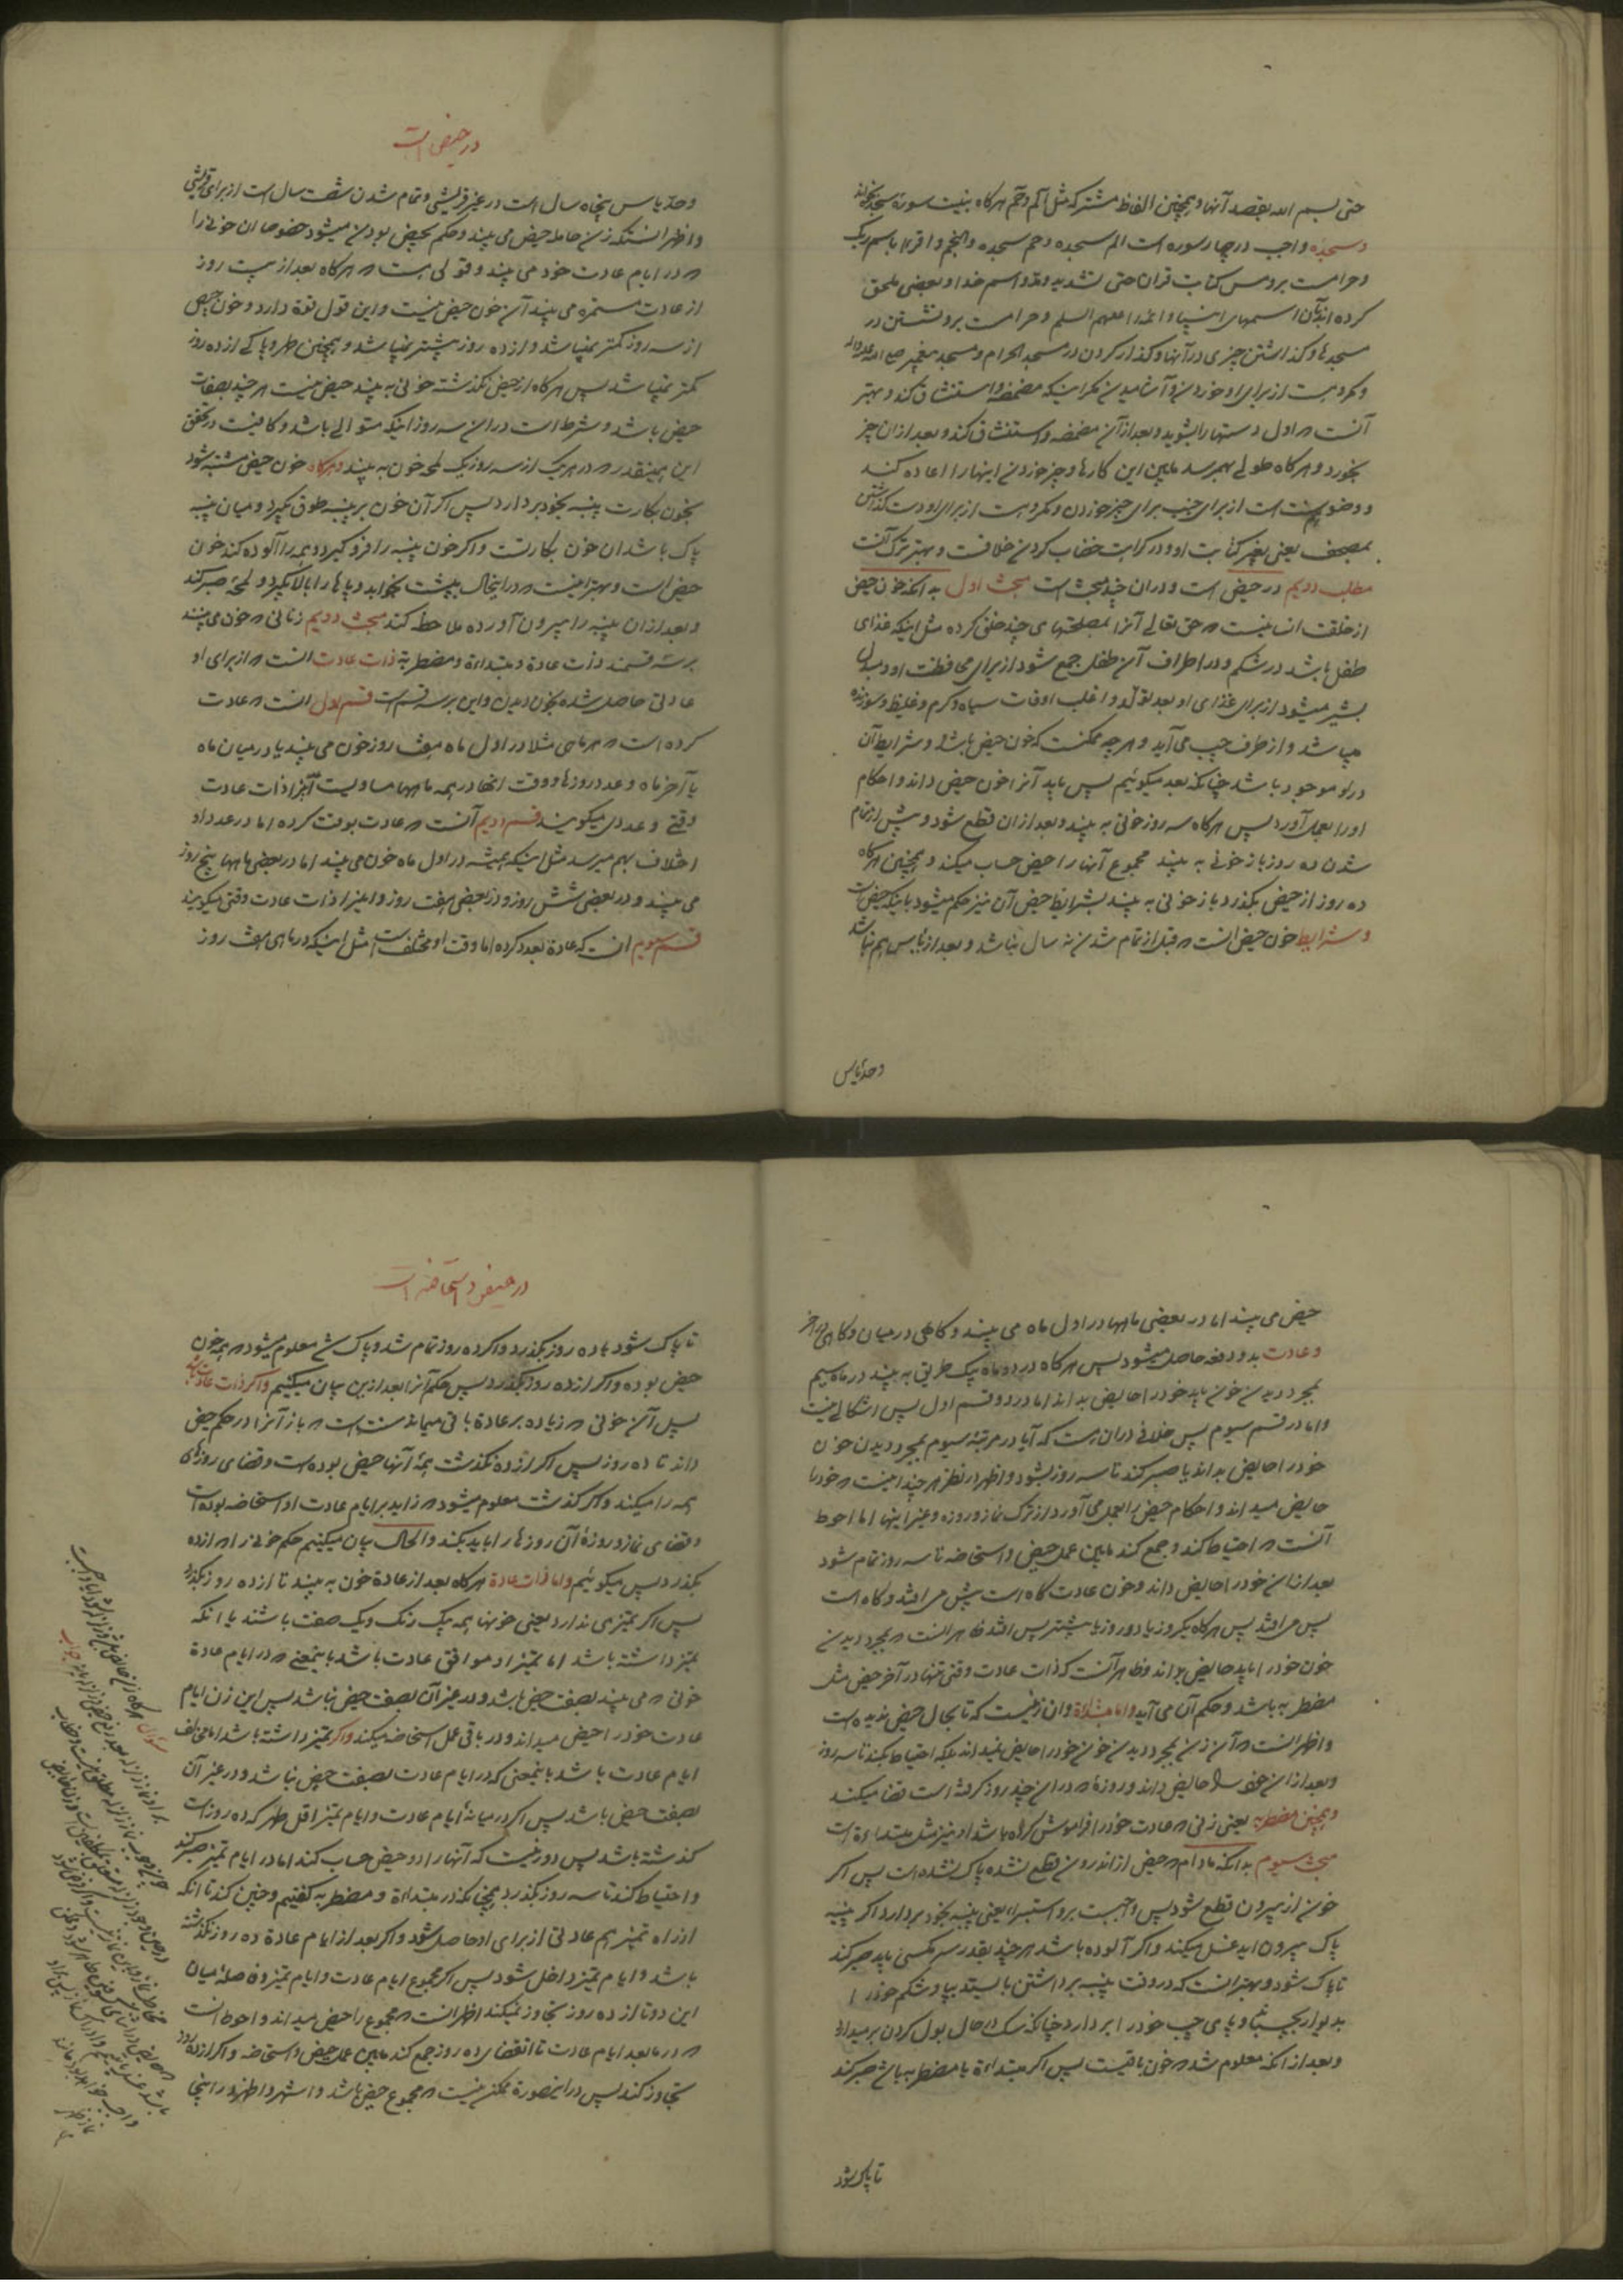 حتی بسم الله بقصد آنها و همچنین الفاظ مشترکه مثل الم و حم هرکاه بنیت سوره سجده بخواند
و سجده واجب در چهار سوره است الم سجده و حم سجده و النجم و اقرا باسم ربک
و حرامست برو مس کتابت قران حتی تشدید و مد و اسم خدا و بعضی ملحق
کرده اند بآن اسمهای انبیا و ائمه را علیهم السلم و حرامست برو نشستن در
مسجدها و کذاشتن چیزی در آنها و کذار کردن در مسجد الحرام و مسجد پیغمبر صلی الله علیه و اله
و مکروهست از برای او خوردن و آشامیدن مکر اینکه مضمضه و استنشاق کند و بهتر
آنست که اول دستها را بشوید و بعد از آن مضمضه و استنشاق کند و بعد از ان چیز
بخورد و هرکاه طولی بهم رسد مابین این کارها و چیز خوردن اینها را اعاده کند
و وضو سنت است از برای جنب برای چیز خوردن و مکروهست از برای او دست کذاشتن
بمصحف یعنی بغیر کتابت او و در کراهت خضاب کردن خلافست و بهتر ترک آنست
مطلب دویم در حیض است و دران چند مبحث است مبحث اول بدانکه خون حیض
از خلقت انسانیست که حق تعالی آنرا بمصلحتهای چند خلق کرده مثل اینکه غذای
طفل باشد در شکم و در اطراف آن طفل جمع شود از برای محافظت او و مبدل
بشیر میشود از برای غذای او بعد تولد و اغلب اوقات سیاه و کرم و غلیظ و سوزنده
میباشد و از طرف چپ می آید و هرچه ممکنست که خون حیض باشد و شرایط آن
در او موجود باشد چنانکه بعد میکوئیم پس باید آنرا خون حیض داند و احکام
اورا بعمل آورد پس هرکاه سه روز خونی به بیند و بعد از ان قطع شود و پیش از تمام
شدن ده روز باز خونی به بیند مجموع آنها را حیض حساب میکند و همچنین هرکاه
ده روز از حیض بکذرد باز خونی به بیند بشرایط حیض آن نیز حکم میشود باینکه حیض است
و شرایط خون حیض آنست که قبل از تمام شدن نه سال نباشد و بعد از یاس هم نباشد
و حد یاس
در حیض است
و حد یاس پنجاه سال است در غیر قریشی و تمام شدن شصت سال است از برای قریشی
و اظهر انستکه زن حامله حیض می بیند و حکم بحیض بودن میشود خصوصا ان خونی را
که در ایام عادت خود می بیند و قولی هست که هرکاه بعد از بیست روز
از عادت مستمره می بیند آن خون حیض نیست و این قول قوة دارد و خون حیض
از سه روز کمتر نمیباشد و از ده روز بیشتر نمیباشد و همچنین طهر و پاکی از ده روز
کمتر نمیباشد پس هرکاه از حیض نکذشته خونی به بیند حیض نیست هر چند بصفات
حیض باشد و شرط است در این سه روز اینکه متوالی باشد و کافیست در تحقق
این همینقدر که در هر یک از سه روز یک لمحه خون به بیند و هرکاه خون حیض مشتبه شود
بخون بکارت پنبه بخود بردارد پس اکر آن خون بر پنبه طوق بکیرد و میان پنبه
پاک باشد ان خون بکارتست و اکر خون پنبه را فرو کیرد و همه را آلوده کند خون
حیض است و بهتر اینست که در اینحال به پشت بخوابد و پاها را بالا بکیرد و لمحه صبر کند
و بعد از ان پنبه را بیرون آورده ملاحظه کند مبحث دویم زنانی که خون می بینند
بر سه قسمند ذات عادة و مبتداءة و مضطربة ذات عادت انست که از برای او
عادتی حاصل شده بخون دیدن و این بر سه قسم است قسم اول انست که عادت
کرده است که هر ماهی مثلا در اول ماه هفت روز خون می بیند یا در میان ماه
یا آخر ماه و عدد روزها و وقت انها در همه ماهها مساویست آنرا ذات عادت
وقتی و عددی میکویند قسم دویم آنست که عادت بوقت کرده اما در عدد او
اختلاف بهم میرسد مثل اینکه همیشه در اول ماه خون می بیند اما در بعضی ماهها پنج روز
می بیند و در بعضی شش روز و در بعضی هفت روز و اینرا ذات عادت وقتی میکویند
قسم سیوم انست که عادة بعدد کرده اما وقت او مختلف است مثل اینکه در ماهی هفت روز
حیض می بیند اما در بعضی ماهها در اول ماه می بیند و کاهی در میان و کاهی در آخر
و عادت بدو دفعه حاصل میشود پس هرکاه در دو ماه بیک طریق به بیند در ماه سیم
بمجرد دیدن خون باید خود را حایض بداند اما در دو قسم اول پس اشکالی نیست
و اما در قسم سیوم پس خلافی دران هست که آیا در مرتبه سیوم بمجرد دیدن خون
خود را حایض بداند یا صبر کند تا سه روز بشود و اظهر در نظر هر چند اینست که خود را
حایض میداند و احکام حیض را بعمل می آورد از ترک نماز و روزه و غیر اینها اما احوط
آنست که احتیاط کند و جمع کند مابین عمل حیض و استحاضه تا سه روز تمام شود
بعد از ان خود را حایض داند و خون عادت کاه است پیش می افتد و کاه است
پس می افتد پس هرکاه یکروز یا دو روز یا بیشتر پس افتد ظاهر انست که بمجرد دیدن
خون خود را باید حایض بداند و ظاهر آنست که ذات عادت وقتی تنها در آخر حیض مثل
مضطربه باشد و حکم آن می آید و اما مبتداءة و ان زنیست که تا بحال حیض ندیده است
و اظهر انست که آن زن بمجرد دیدن خون خود را حایض نمیداند بلکه احتیاط بکند تا سه روز
و بعد از ان خود را حایض داند و روزه که در این چند روز کرفته است قضا میکند
و همچنین مضطربه یعنی زنی که عادت خود را فراموش کرده باشد او نیز مثل مبتداءة است
مبحث سیوم بدانکه مادام که حیض از اندرون قطع نشده پاک نشده است پس اکر
خون از بیرون قطع شود پس واجبست برو استبراء یعنی پنبه بخود بردارد اکر پنبه
پاک بیرون اید غسل میکند و اکر آلوده باشد هر چند بقدر سر مکسی باید صبر کند
تا پاک شود و بهتر انست که در وقت پنبه برداشتن بایستد بپا و شکم خود را
بدیوار بچسباند و پای چپ خود را بردارد چنانکه سک در حال بول کردن بر میدارد
و بعد از انکه معلوم شد که خون باقیست پس اکر مبتداءة یا مضطربه باشد صبر کند
تا پاک شود
در حیض و استحاضه است
تا پاک شود یا ده روز بکذرد و اکر ده روز تمام شد و پاک شد معلوم میشود که همه خون
حیض بوده و اکر از ده روز بکذرد پس حکم آنرا بعد ازین بیان میکنیم و اکر ذات عادت باشد
پس آن خونی که زیاده بر عادة باقی میماند سنت است که باز آنرا در حکم حیض
داند تا ده روز پس اکر از ده نکذشت همه آنها حیض بوده است و قضای روزهای
همه را میکند و اکر کذشت معلوم میشود که زاید بر ایام عادت او استحاضه بوده است
و قضای نماز و روزه آن روزها را باید بکند و الحال بیان میکنیم حکم خونی را که از ده
بکذرد پس میکوئیم و اما ذات عادة هرکاه بعد از عادة خون به بیند تا از ده روز بکذرد
پس اکر تمیزی ندارد یعنی خونها همه بیک رنک و یک صفت باشند یا انکه
تمیز داشته باشد اما تمیز او موافق عادت باشد باینمعنی که در ایام عادة
خونی که می بیند بصفت حیض باشد و در غیر آن بصفت حیض نباشد پس این زن ایام
عادت خود را حیض میداند و در باقی عمل استحاضه میکند و اکر تمیز داشته باشد اما مخالف
ایام عادت باشد باینمعنی که در ایام عادت بصفت حیض نباشد و در غیر آن
بصفت حیض باشد پس اکر در میانه ایام عادت و ایام تمیز اقل طهر که ده روز است
کذشته باشد پس دور نیست که آنها را دو حیض حساب کند اما در ایام تمیز صبر کند
و احتیاط کند تا سه روز بکذرد همچنانکه در مبتداءة و مضطربه کفتیم و چنین کند تا انکه
از راه تمیز هم عادتی از برای او حاصل شود و اکر بعد از ایام عادة ده روز نکذشته
باشد و ایام تمیز داخل شود پس اکر مجموع ایام عادت و ایام تمیز و فاصله میان
این دو تا از ده روز تجاوز نمیکند اظهر انست که مجموع را حیض میداند و احوط انست
که در ما بعد ایام عادت تا انقضای ده روز جمع کند مابین عمل حیض و استحاضه و اکر از ده روز
تجاوز کند پس در اینصورة ممکن نیست که مجموع حیض باشد و اشهر و اظهر در اینجا
سؤال
جواب